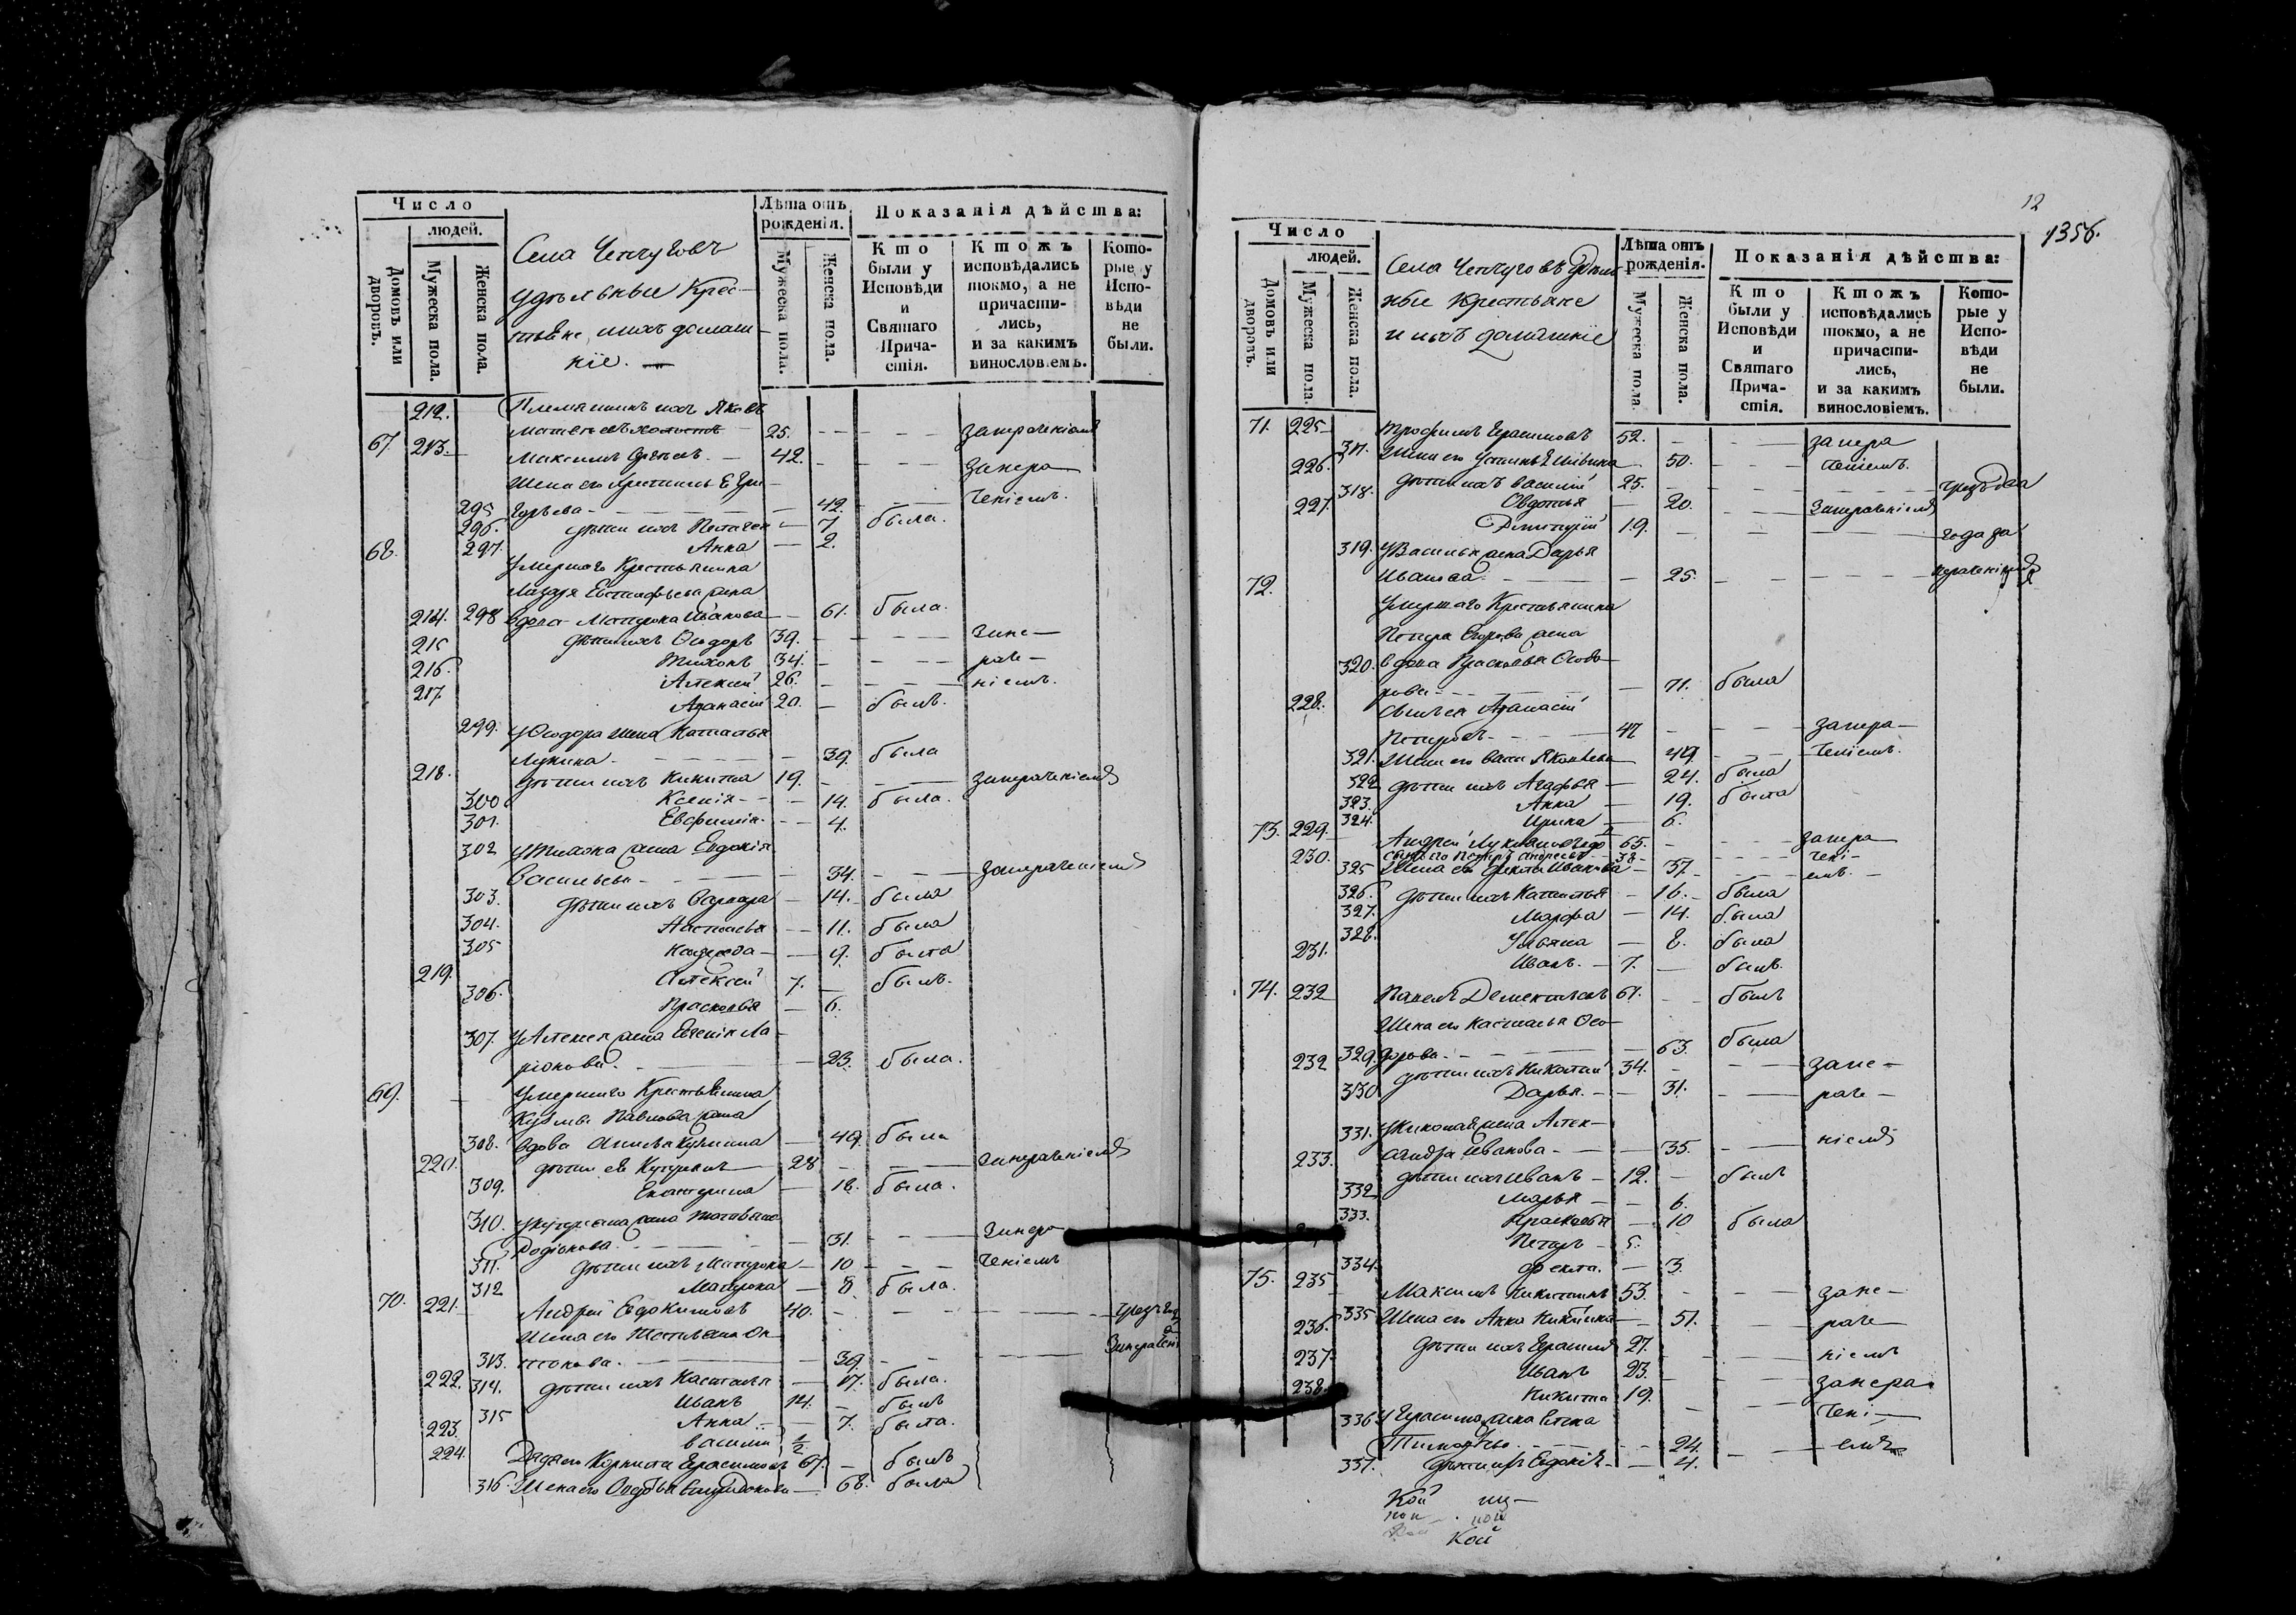 Число
людей.
Домовъ или дворовъ.
Мужеска пола.
Женска пола.
Села Чепчуговъ
удѣльные Крес-
тьяне, и ихъ домаш-
ніе. —
Лѣта отъ рожденія.
Мужеска пола.
Женска пола.
Показанія дѣйства:
Кто были у Исповѣди и Святаго Причастія.
Ктожъ исповѣдались токмо, а не причастились, и за какимъ винословіемъ.
Которые у Исповѣди не были.
212. Племянникъ ихъ Яковъ
25. занераченіемъ
67. 213. Максимъ 42. Занера
Жена его
295 42. ченіемъ.
296. дѣти ихъ 7 была.
297. Анна — 2.
68. Умершаго Крестьянина
Лазаря Евстафьева жена
214. 298 вдова Матрона Иванова — 61. была.
215 дѣти ихъ Ѳеодоръ 39. Зане—
216. Тихонъ 34. раче—
217 Алексей 26. ніемъ.
Афанасій 20. — былъ.
299. У Ѳеодора жена Настасья
Лукина — 39. была
218. дѣти ихъ Никита 19. занераченіемъ
300 Ксенія — 14. была.
301. Евфимія — 4.
302 У Тихона жена Евдокія
Васильева — 34. занераченіемъ
303. дѣти ихъ Варвара — 14. была
304. Настасья — 11. была
305 — 9. была
219. Алексей 7. — былъ.
306. Прасковья — 6.
307. У Алексея жена Евгенія Ла-
ріонова. — 23. была.
69. Умершаго Крестьянина
Кузьмы Павлова жена
308. вдова Анисья Кузмина — 49. была
220. дѣти ея 28 занераченіемъ
309. Екатерина — 18. была.
310. жена Татьяна
Родіонова. — 31. Занера
311. дѣти ихъ Матрона — 10 ченіемъ
312 Матрона — 8. была.
70. 221. Андрей Евдокимовъ 40.
Жена его
313. — 39.
222. 314. дѣти ихъ Настасья — 17. была.
Иванъ 14. — былъ
315 Анна — 7. была.
223. василій 1/2
224. Дядя его Герасимовъ 67. — былъ
316. Жена его — 68. была
12
1356.
Число
людей.
Домовъ или дворовъ.
Мужеска пола.
Женска пола.
Села Чепчуговъ удѣль-
ные Крестьяне
и ихъ домашніе
Лѣта отъ рожденія.
Мужеска пола
Женска пола.
Показанія дѣйства:
Кто были у Исповѣди и Святаго Причастія.
Ктожъ исповѣдались токмо, а не причастились, и за какимъ винословіемъ.
Которые у Исповѣди не были.
71. 225 Трофимъ Герасимовъ 52. — занера
317. Жена его — 50. ченіемъ.
226. дѣти ихъ василій 25.
318. Овдотья — 20. Занераченіемъ
227. Димитрій 19. года за
319. У Василья жена Дарья
Иванова — 25. нераченіемъ
72. Умершаго Крестьянина
Петра Егорова жена
320. вдова Прасковья Ѳеодо-
рова — 71. была
228. Сынъ ея Афанасій
Петровъ 47 занера—
321. Жена его Яковлева — 49 ченіемъ.
322 дѣти ихъ Агафья — 24. была
323. Анна — 19. была
324. Ирина — 6.
73. 229. Андрей 65. занера
230. сынъ его Петръ Андреевъ 38 чені-
325 Жена его Фекла Иванова — 37. емъ.
326. дѣти ихъ Настасья — 16. была
327. Марфа — 14. была
328. Ульяна — 8. была
231. Иванъ. — 7. — былъ.
74. 232 Павелъ Дементьевъ 61. былъ
Жена его Настасья Ѳео-
329. дорова — 63. была
232 дѣти ихъ Николай 34. зане-
330 Дарья. — 31. раче-
331. У Николая жена Алек-
сандра Иванова — 35. ніемъ
233. дѣти ихъ Иванъ — 12. — былъ
332 Марья — 6.
333. Прасковья — 10 была
Петръ 5.
334. Фекла. — 3.
75. 235 Максимъ Никитинъ 53. зане-
335 Жена его Анна Никитина 51. раче-
236. дѣти ихъ Герасимъ 27. ніемъ
237. Иванъ 23. занера
238. Никита 19. чені-
336 У Герасима жена Елена
24. емъ
337. дѣти ихъ Евдокія — 4.
Кой
Кой